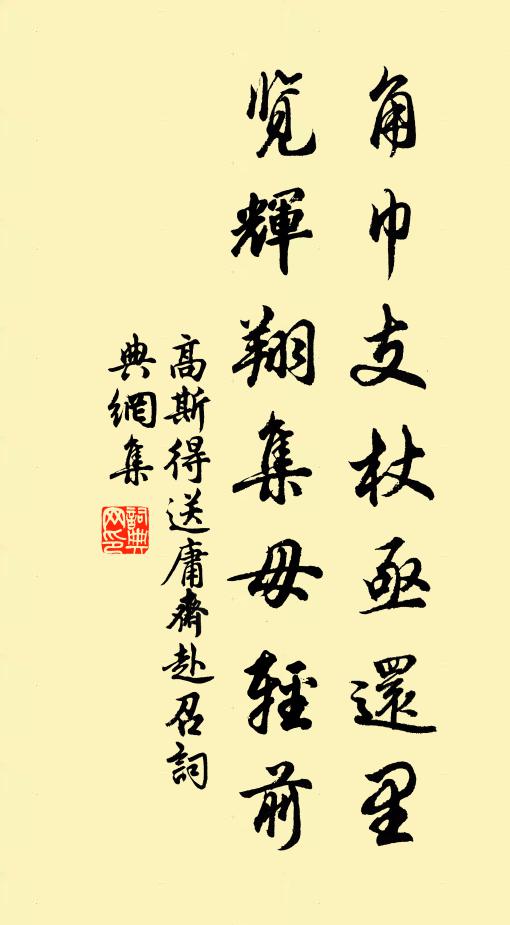 角巾支杖亟還里
览輝翔集毋輕前
高斯得送庸齋赴召詞
典網集
詞典網印